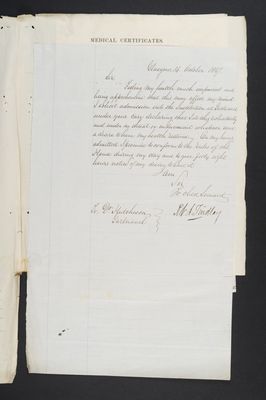 MEDICAL CERTIFICATES.
Glasgow, 14 October 1857.
Sir
Feeling my health much impaired and
being apprehensive that this may affect my mind
I solicit admission into the Institution at Gartnavel
under your care declaring that I do this voluntarily
and under no threat or enforcement whatever save
a desire to have my health restored. On my being
admitted I promise to conform to the rules of the
House during my stay and to give forty eight
hours notice of my desire to leave it
I am
Sir
Yr obed Servant
To Dr
Gartnavel
Findlay